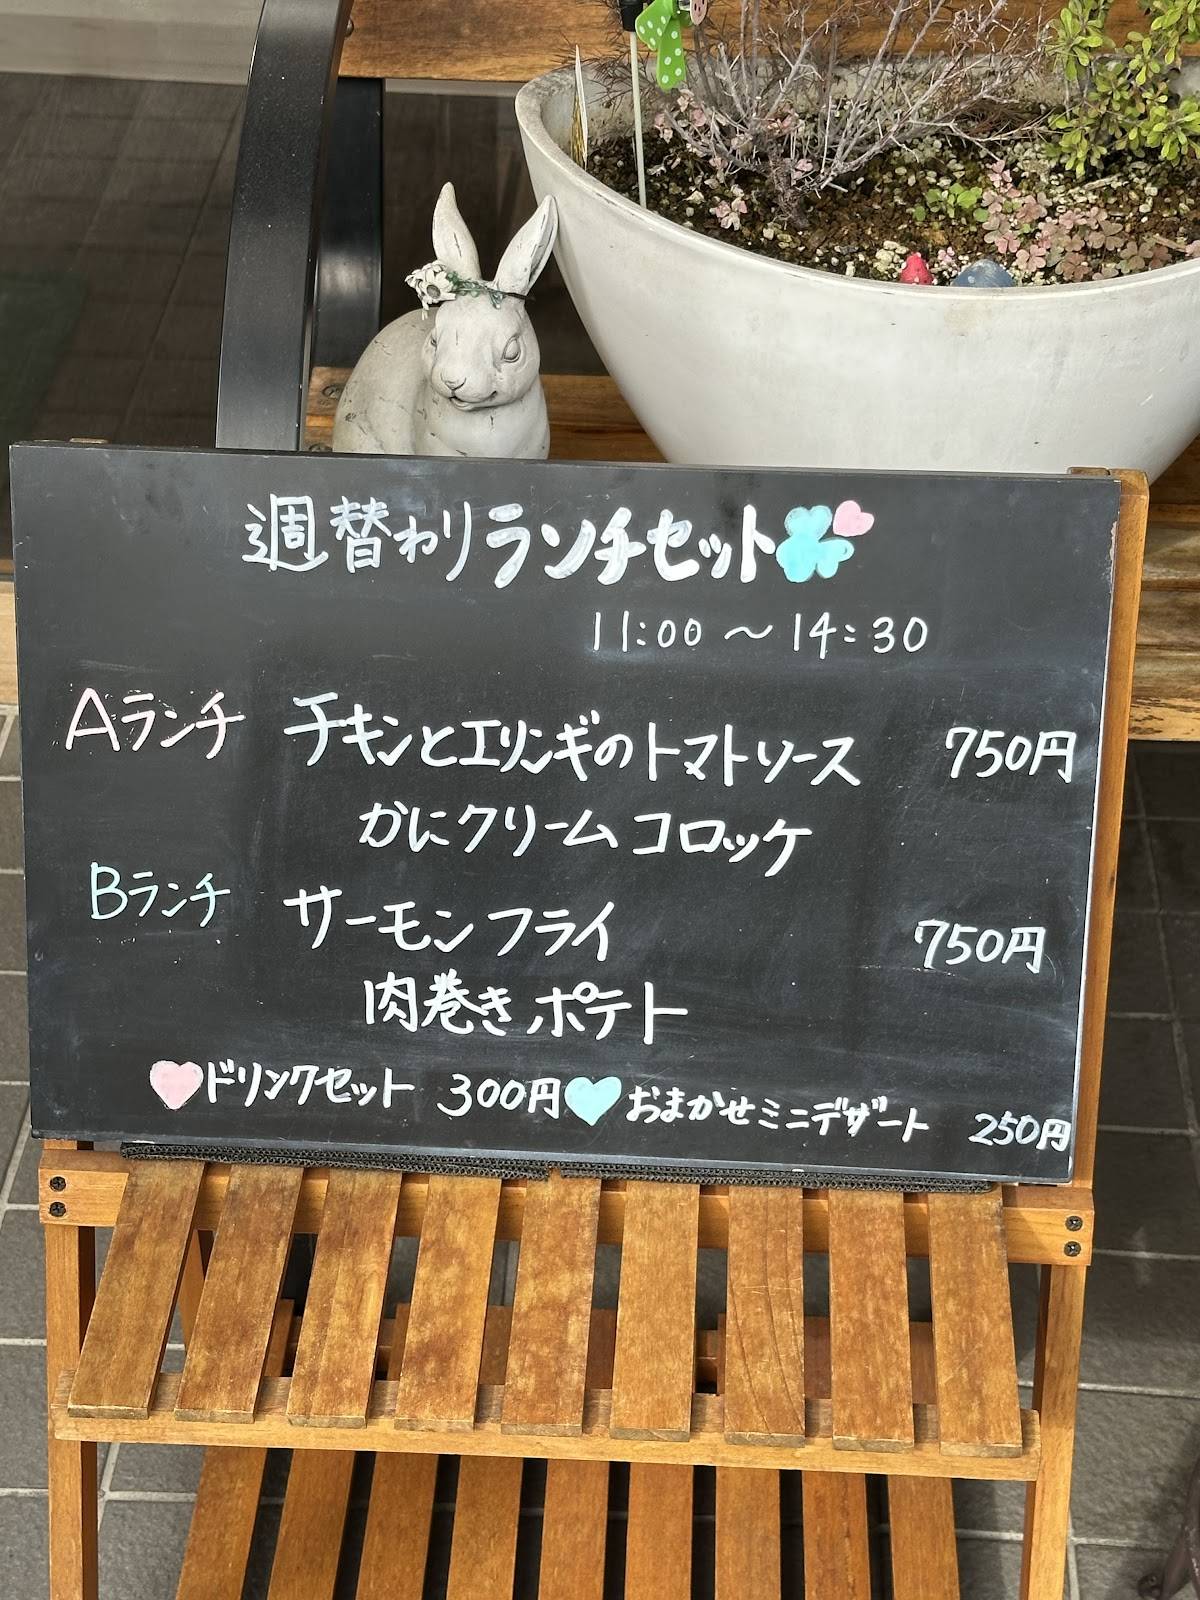 週替わりランチセット
11:00 ～ 14:30
Aランチ チキンとエリンギのトマトソース 750円
かにクリームコロッケ
Bランチ サーモンフライ 750円
肉巻きポテト
ドリンクセット 300円 おまかせミニデザート 250円